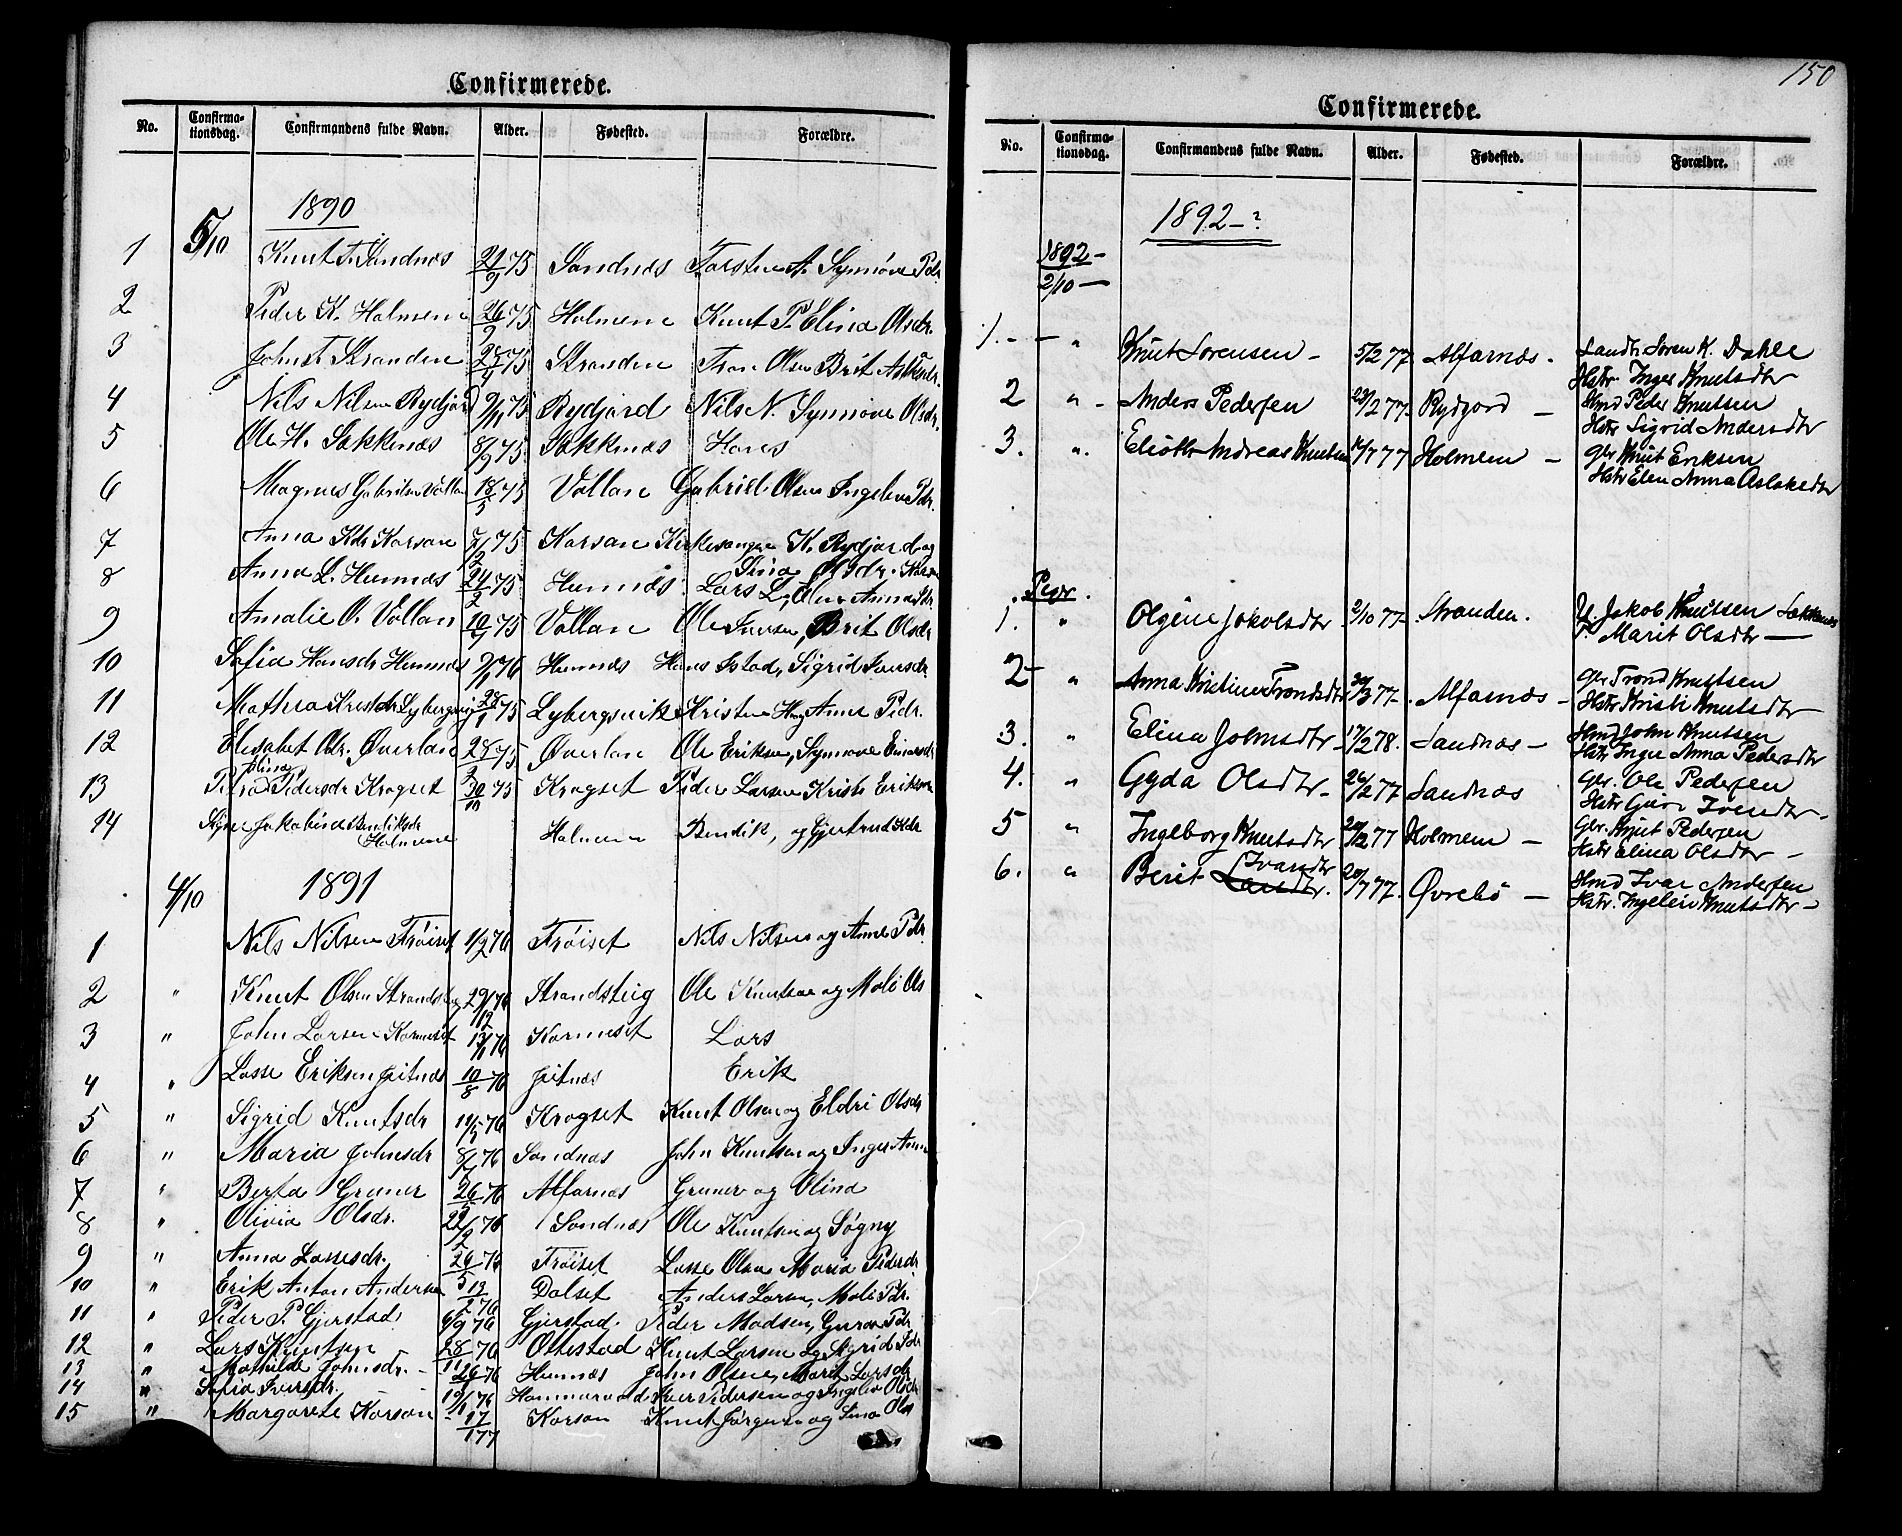 Confirmerede.
No. Confirmationsdag. Confirmandens fulde Navn. Alder. Fødested. Forældre.
5/10 1890
1 Knut T. Sandnæs 21/9 75 Sandnæs Torsten A. Synnøve Pdr.
2 Peder K. Holmem 26/9 75 Holmem Knut P. Elina Olsdr.
3 John T. Stranden 75 Stranden Tron Olsen Brit
4 Nils Nilsen Rydjord 9/11 75 Rydjord Nils N. Synnøve Olsdr.
5 Ole H. Sækkenæs 75 Sækkenæs Hans
6 Magnus Gabrielsen Vollan 18/5 75 Vollan Gabriel Olsen Ingeleiv Pdr.
7 Anna Kdr Korsan 75 Korsan Kirkesanger K. Rydjord og
Sina Olsdr. Korsan
8 Anna L. Humnæs 24/2 75 Humnæs Lars
9 Amalie O. Vollan 75 Vollan Ole Iversen, Brit Olsdr
10 Sofia Hansdr Humnæs 9/1 76 Humnæs Hans Istad, Sigrid Iversdr.
11 Mathea Krestdr Lybergsvig 28/1 75 Lybergsvik Kristen H og Anne Pedr.
12 Elisabet Odr. Øverlan 28 75 Øverlan Ole Eriksen, Synnøve Einarsdr
13 Petra Olina Pedersdr Krogset 30/10 75 Krogset Peder Larsen Kristi Eriksen
14 Jakobina Bendiksdr Holmem Holmem Bendik, og Gjertrud Kdr
4/10 1891
1 Nils Nilsen Trøiset 1/2 76 Trøiset Nils Nilsen og Anne Pdr.
2 " Knut Olsen Strandsteig 29/12 76 Strandsteig Ole Knutsen og Mali Ols
3 " John Larsen Kormeset 13/1 76 Kormeset Lars
4 " Lasse Eriksen Jritnæs 10/8 76 Jritnæs Erik
5 " Sigrid Knutsdr 11/5 76 Krogset Knut Olsen og Eldri Olsdr
6 " Maria Johnsdr 76 Sandnæs John Knutsen og Inger Anne
7 " Berta Gruner 26/5 76 Alfarnæs Gruner og Olina
8 " Olivia Olsdr. 76 Sandnæs Ole Knutsen og Søgny
9 " Anna Lassesdr. 26/5 76 Trøiset Lasse Olsen Maria Pedersdr
10 " Erik Anton Andersen 12/2 76 Dalset Anders Larsen, Mali Pdr.
11 " Peder P. Gjerstad 6/9 76 Gjerstad Peder Madsen, Guron Pdr
12 " Lars Knutsen 28/11 76 Ottestad Knut Larsen og Sigrid Pdr
13 " Mathilde Johnsdr. 26 76 Humnæs John Olsen, Marit Larsdr
14 " Sofia Iversdr. 76 Hammervold Iver Pedersen og Ingeleiv Olsdr
15 " Margarete Korsan 17/1 77 Korsan Knut Jørgensen og Sina Ols
150
Confirmerede.
No. Confirmationsdag. Confirmandens fulde Navn. Alder. Fødested. Forældre.
1892-?
1892-
2/10-
1. " Knut Sorensen - 5/2 77 Alfarnæs. Landh. Søren K. Dahle
Hstr. Inger Knutsdtr
2 " Anders Pedersen 77 Rydjord - Hmd Peder Knutsen
Hstr Sigrid Andersdtr
3. " Andreas Knutsen 77 Holmem - Gbr Knut Eriksen
Hstr Elen Anna Aslaksdtr
Piger.
1. " Olgine Jakobsdtr 2/10 77 Stranden. Jakob Knutsen Sækkenæs
Marit Olsdtr -
2 - " Anna Kristine Trondsdtr 77 Alfarnæs - Gbr Trond Knutsen
Hstr Kristi Knutsdtr
3. " Elina Johnsdtr 17/2 78. Sandnæs - Hmd John Knutsen
Hstr Inger Anna Pedersdtr
4. " Gyda Olsdtr - 77 Sandnæs Gbr. Ole Pedersen
Hstr Guri Iversdtr -
5 " Ingeborg Knutsdtr 77 Holmem - Gbr. Knut Pedersen
Hstr Elina Olsdtr -
6. " Berit Ivarsdtr. 20/7 77. Øvrebø - Hmd Ivar Andersen
Hstr. Ingeleiv Knutsdtr -